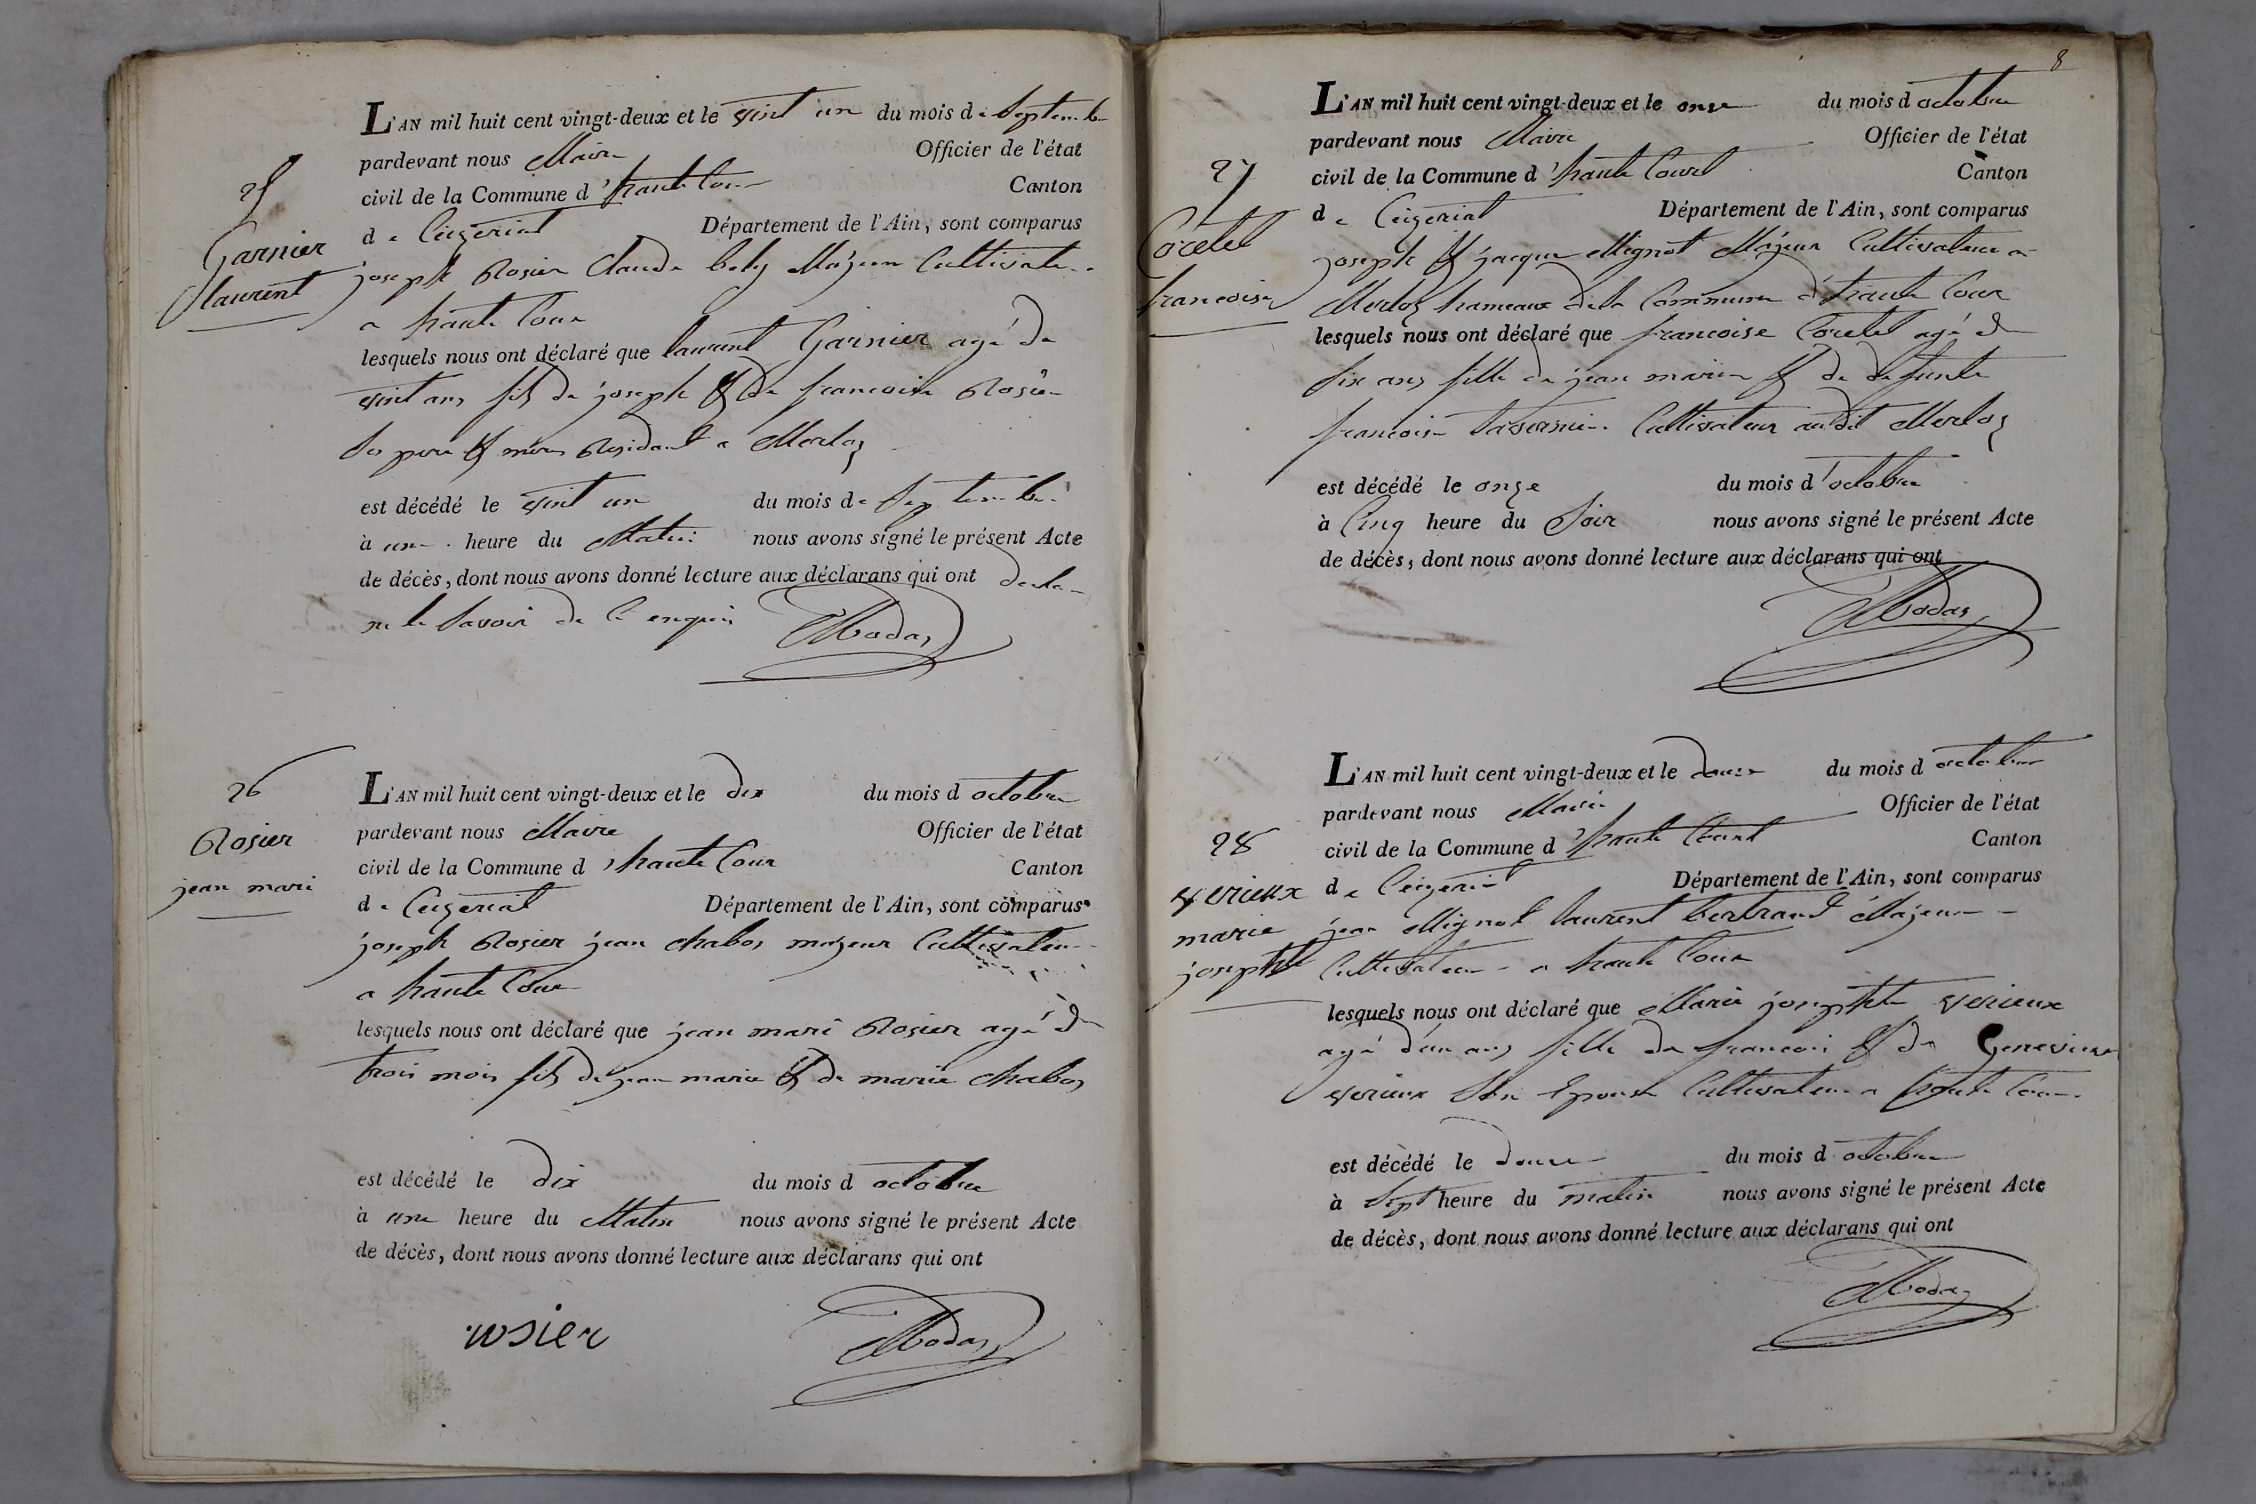 25
Garnier
laurent
L'AN mil huit cent vingt-deux et le vint un du mois de Septembre
pardevant nous Maire Officier de l'état
civil de la Commune d'haute Cour Canton
de Ceizeriat Département de l'Ain, sont comparus
joseph Rosier Claude bely Majeur Cultivateur
a haute Cour
lesquels nous ont déclaré que laurent Garnier agé de
vint ans fils de joseph & de francoise Rosier
Ses pere & mere Residant a Merloz
est décédé le vint un du mois de Septembre
à une heure du Matin nous avons signé le présent Acte
de décès, dont nous avons donné lecture aux déclarans qui ont declaré
ne le Savoir de ce enquis Moday
26
Rosier
jean mari
L'AN mil huit cent vingt-deux et le dix du mois d octobre
pardevant nous Maire Officier de l'état
civil de la Commune d'haute Cour Canton
de Ceizeriat Département de l'Ain, sont comparus
joseph Rosier jean Chabos majeur Cultivateur
a haute Cour
lesquels nous ont déclaré que jean mari Rosier agé de
trois mois fils de jean marie & de marie Chabos
est décédé le dix du mois d octobre
à une heure du Matin nous avons signé le présent Acte
de décès, dont nous avons donné lecture aux déclarans qui ont
rosier Moday
8
27
Coretel
francoise
L'AN mil huit cent vingt-deux et le onze du mois d octobre
pardevant nous Maire Officier de l'état
civil de la Commune d'haute Court Canton
de Ceizeriat Département de l'Ain, sont comparus
joseph & jacque Mignot Majeur Cultivateur a
Merloz hameaux de la Commune d'haute Cour
lesquels nous ont déclaré que francoise Coretel agé de
Six ans fille de jean marie & de defunte
francoise Tavernier Cultivateur audit Merloz
est décédé le onze du mois d'octobre
à Cinq heure du Soir nous avons signé le présent Acte
de décès, dont nous avons donné lecture aux déclarans qui ont
Moday
28
verieux
marie
josephte
L'AN mil huit cent vingt-deux et le douze du mois d octobre
pardevant nous Maire Officier de l'état
civil de la Commune d'haute Court Canton
de Ceizeriat Département de l'Ain, sont comparus
jean Mignot laurent bertrand Majeur
Cultivateur a haute Cour
lesquels nous ont déclaré que Marie josephte verieux
agé d'un ans fille de francois & de Genevieve
verieux Son Epouse Cultivateur a haute Cour
est décédé le douze du mois d octobre
à Sept heure du matin nous avons signé le présent Acte
de décès, dont nous avons donné lecture aux déclarans qui ont
Moday